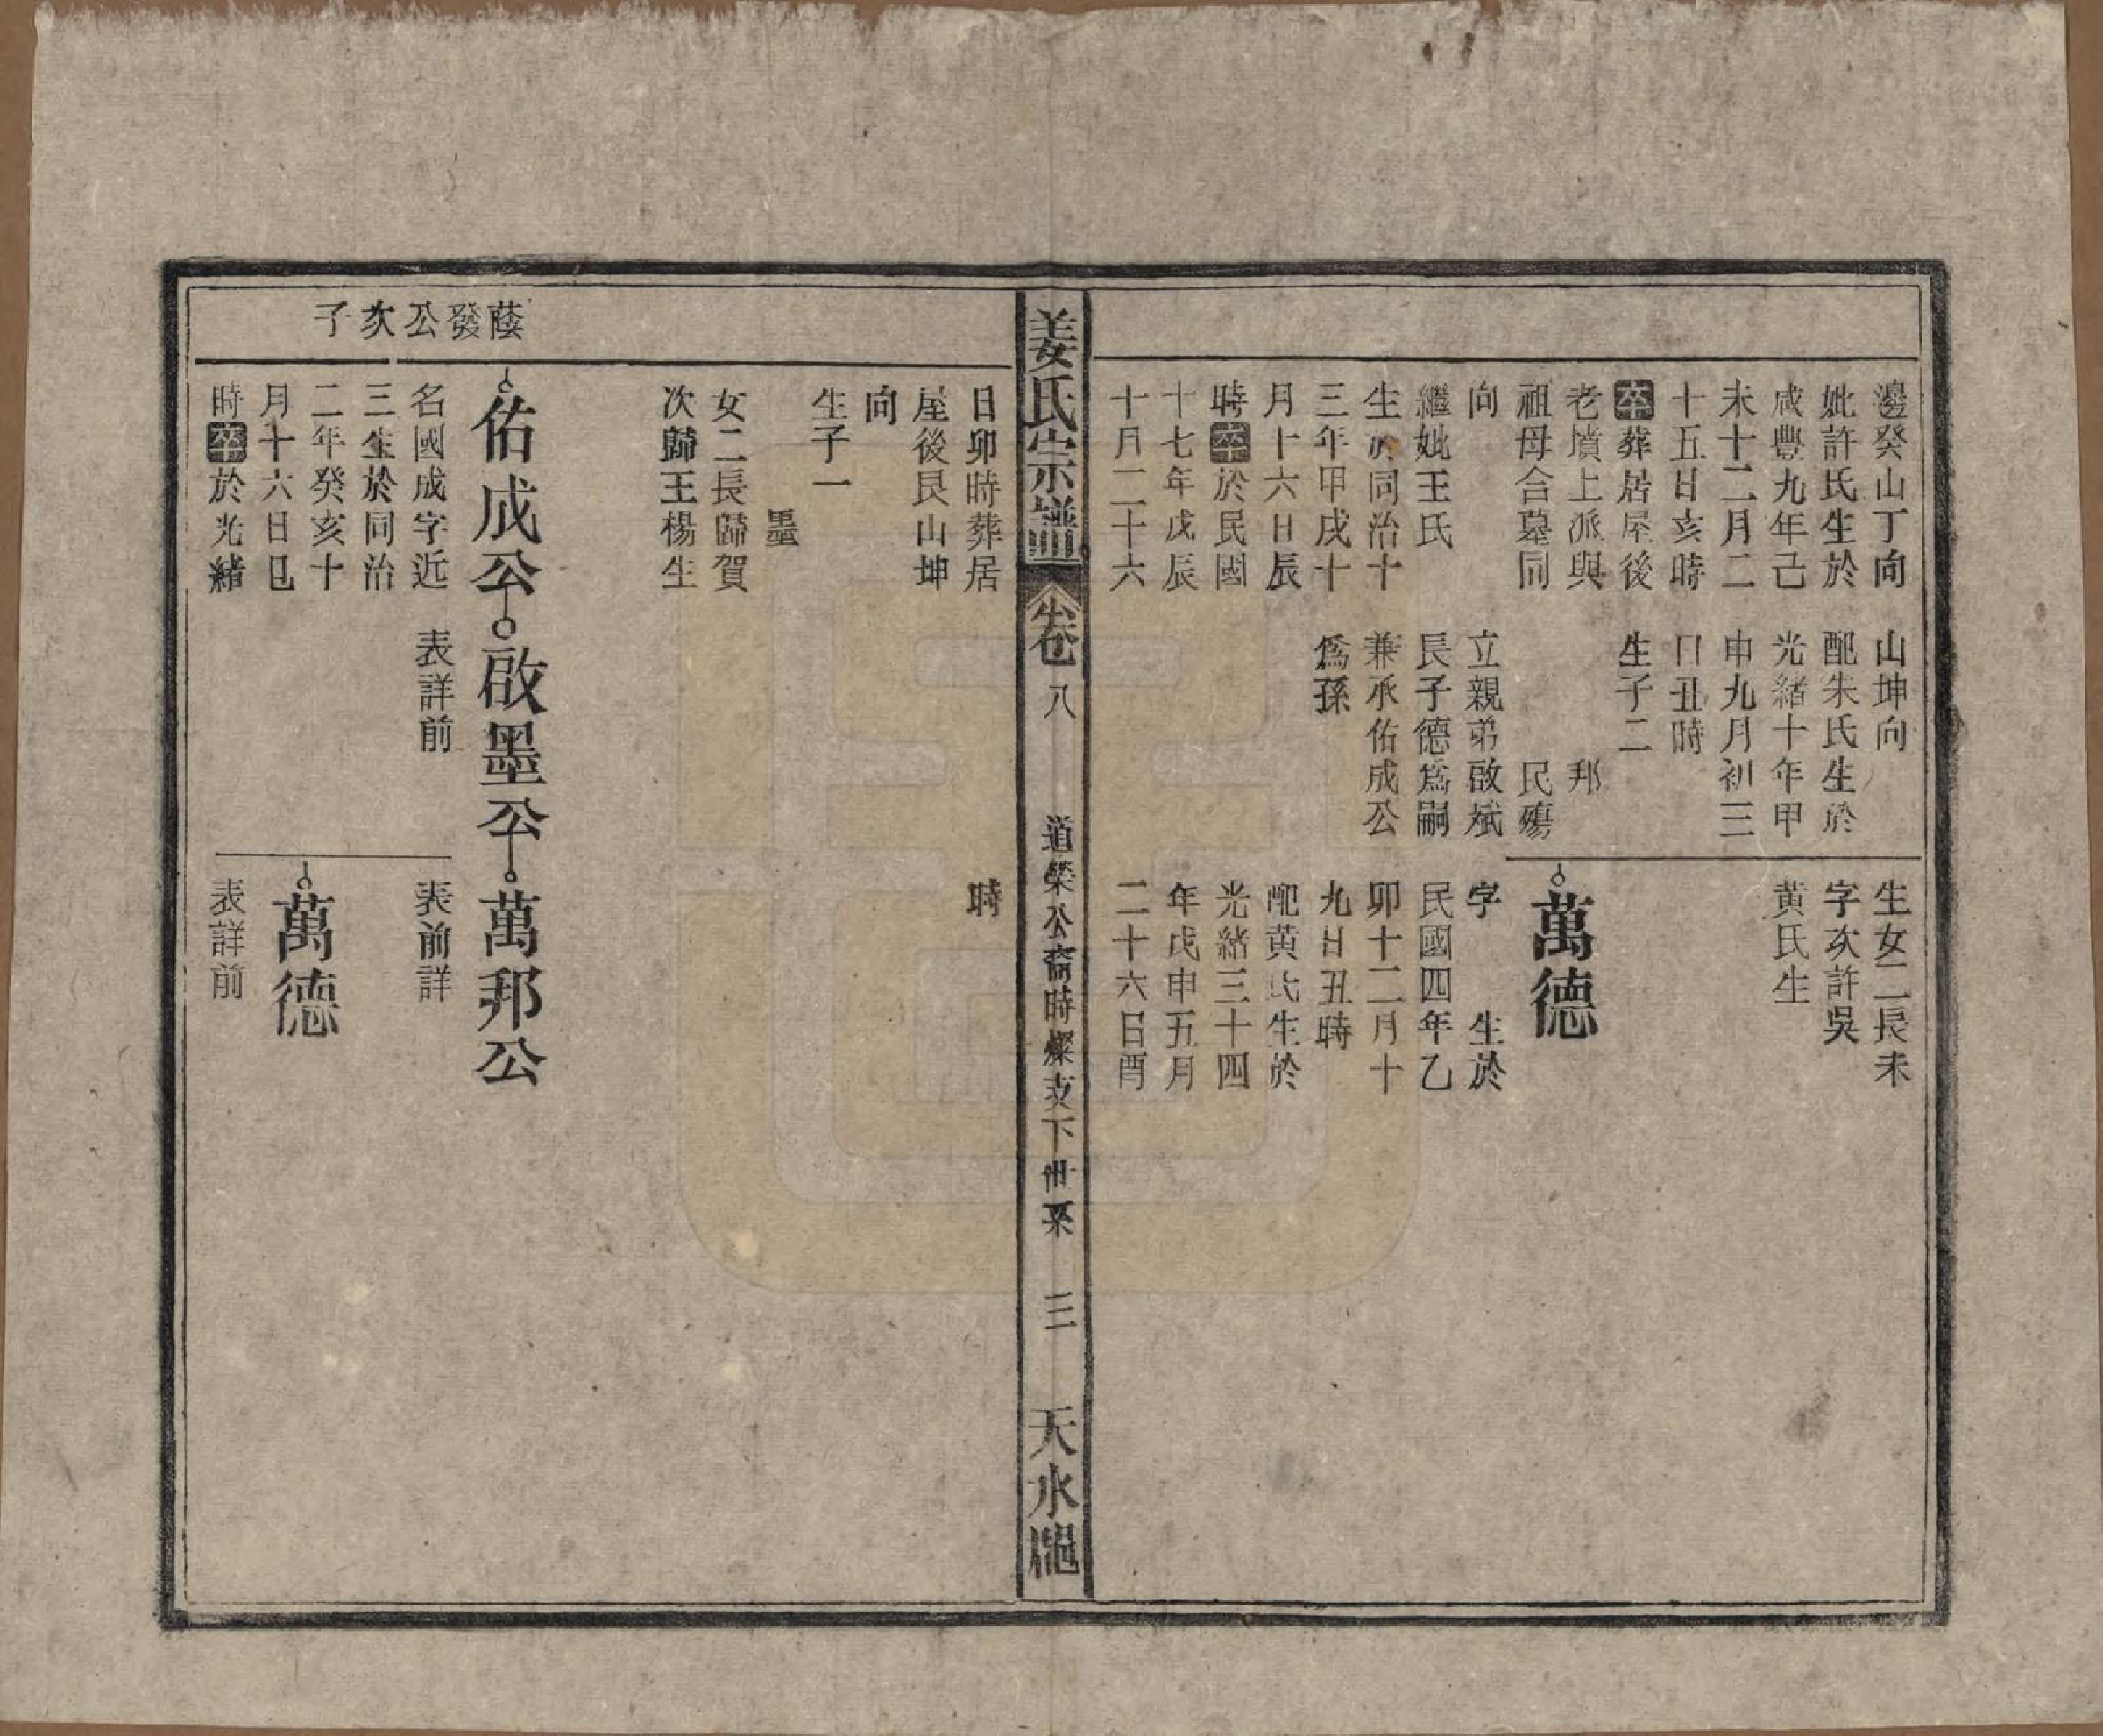 邊癸山丁向
妣許氏生於
咸豐九年己
未十二月二
十五日亥時
卒葬居屋後
老墳上派與
祖母合墓同
向
繼妣王氏
生於同治十
三年甲戌十
月十六日辰
時卒於民國
十七年戊辰
十月二十六
山坤向
配朱氏生於
光緒十年甲
申九月初三
日丑時
生子二
邦
民殤
立親弟啟斌
民子德為嗣
兼承佑成公
為孫
生女二長未
字次許吳
黃氏生
萬德
字 生於
民國四年乙
卯十二月十
九日丑時
配黃氏生於
光緒三十四
年戊申五月
二十六日酉
姜氏宗譜 卷八 道榮公裔時燦支下世系 三 天水郡
日卯時葬居
屋後艮山坤
向
生子一
墨
女二長歸賀
次歸王楊生
時
蔭發公次子
佑成公
啟墨公
萬邦公
名國成字近
三生於同治
二年癸亥十
月十六日巳
時卒於光緒
表詳前
表前詳
萬德
表詳前